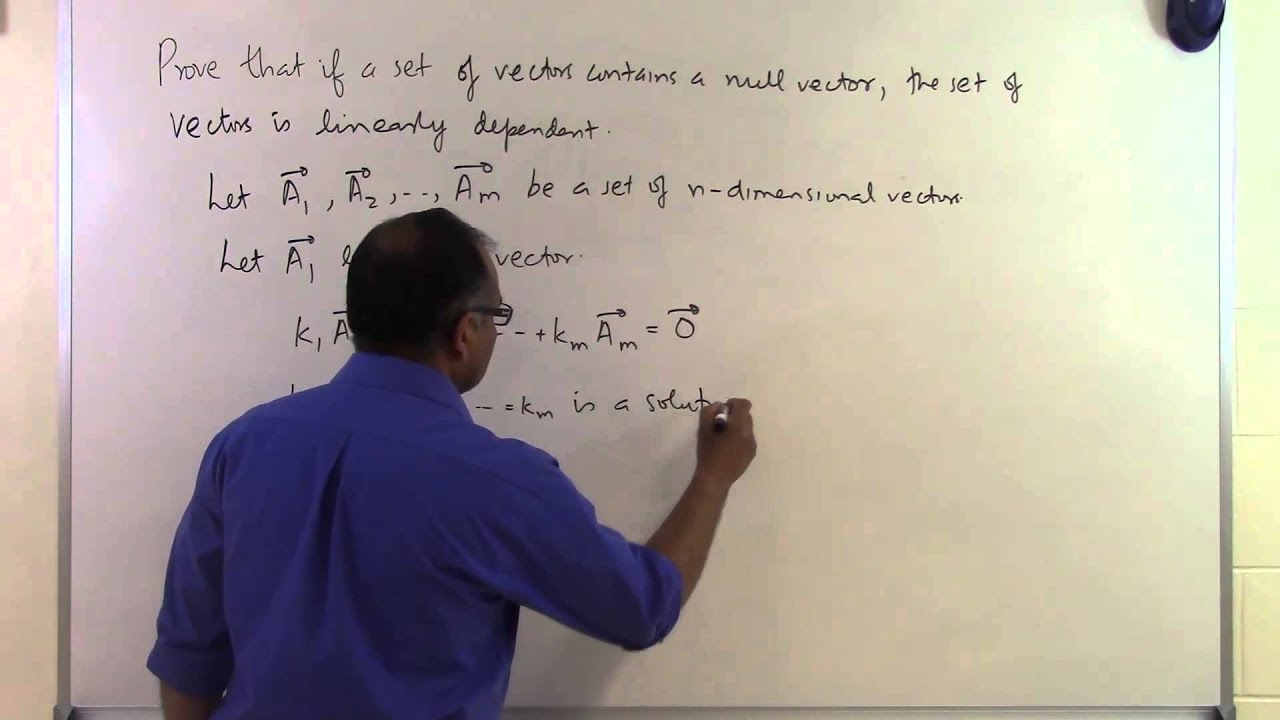 Prove that if a set of vectors contains a null vector, the set of
vectors is linearly dependent.
Let A⃗₁, A⃗₂, --, A⃗ₘ be a set of n-dimensional vectors.
Let A⃗₁ vector.
k₁ - + kₘ A⃗ₘ = 0⃗
-- = kₘ is a solut